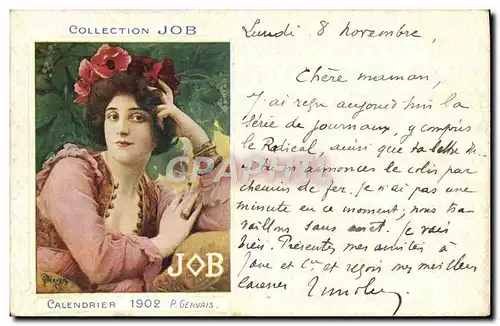 COLLECTION JOB
Lundi 8 novembre,
Chère maman,
J'ai reçu aujourd'hui la
série de journaux, y compris
le Radical, ainsi que ta lettre
m'annonces le colis par
chemin de fer. Je n'ai pas une
minute en ce moment; nous tra-
vaillons sans arrêt. Je vais
bien. Présentes mes amitiés à
et Cie et reçois mes meilleures
caresses
JOB
CALENDRIER 1902 P. GERVAIS.